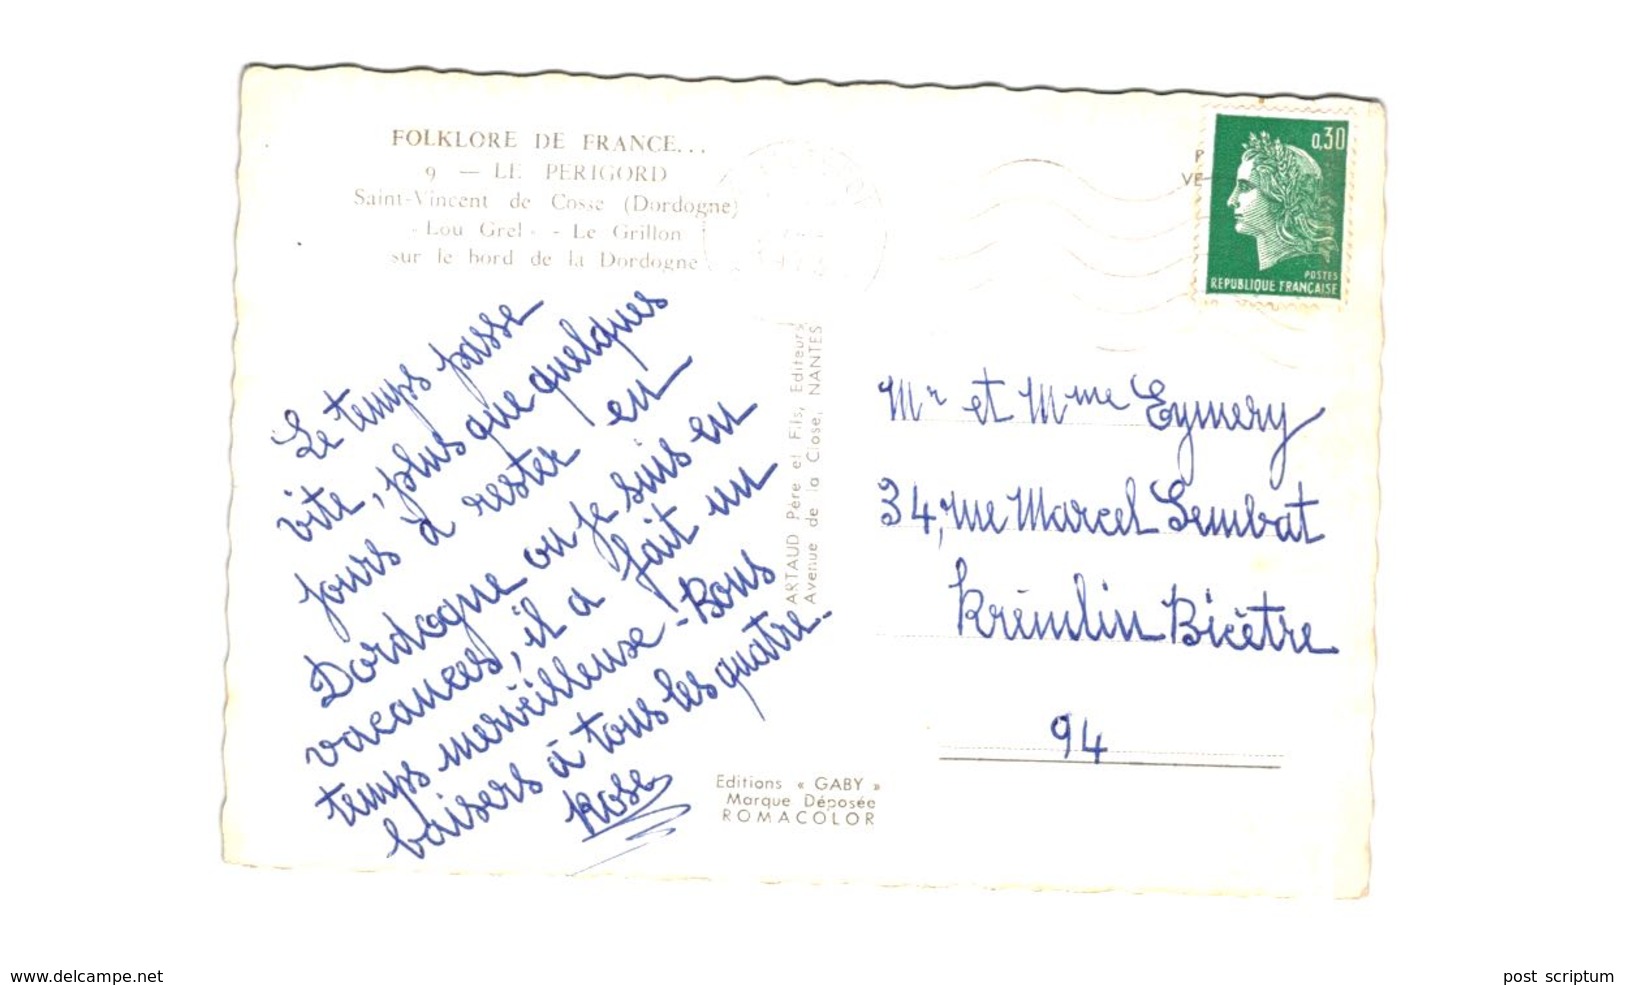 FOLKLORE DE FRANCE...
9 — LE PERIGORD
Saint-Vincent de Cosse (Dordogne)
« Lou Grel » - Le Grillon
sur le bord de la Dordogne
Le temps passe
vite, plus que quelques
jours à rester en
Dordogne ou je suis en
vacances, il a fait un
temps merveilleuse - Bons
baisers à tous les quatre.
Rose
ARTAUD Père et Fils, Editeurs
Avenue de la Close, NANTES
Editions « GABY »
Marque Déposée
ROMACOLOR
0,30
POSTES
REPUBLIQUE FRANÇAISE
Mr et Mme Eymery
34, rue Marcel Sembat
Krémlin Bicêtre
94
www.delcampe.net
post scriptum